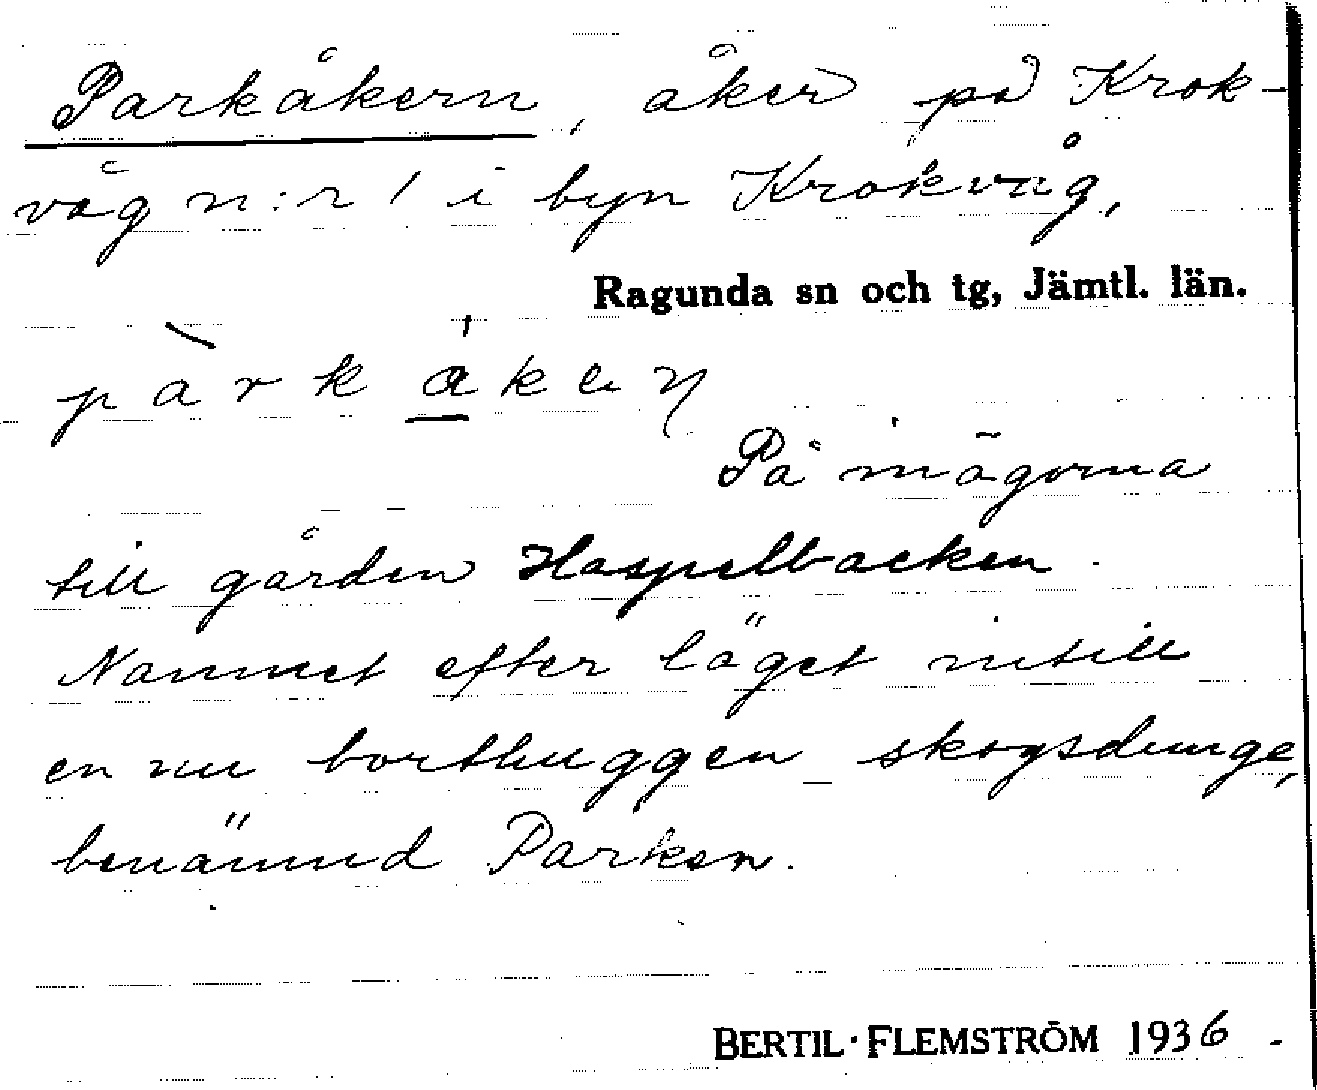 Parkåkern, åker på Krok-
våg n:r 1 i byn Krokvåg,
Ragunda sn och tg, Jämtl. län.
pàrkåkeɳ
På inägorna
till gården Haspelbacken.
Namnet efter läget intill
en nu borthuggen skogsdunge,
benämnd Parken.
BERTIL FLEMSTRÖM 1936